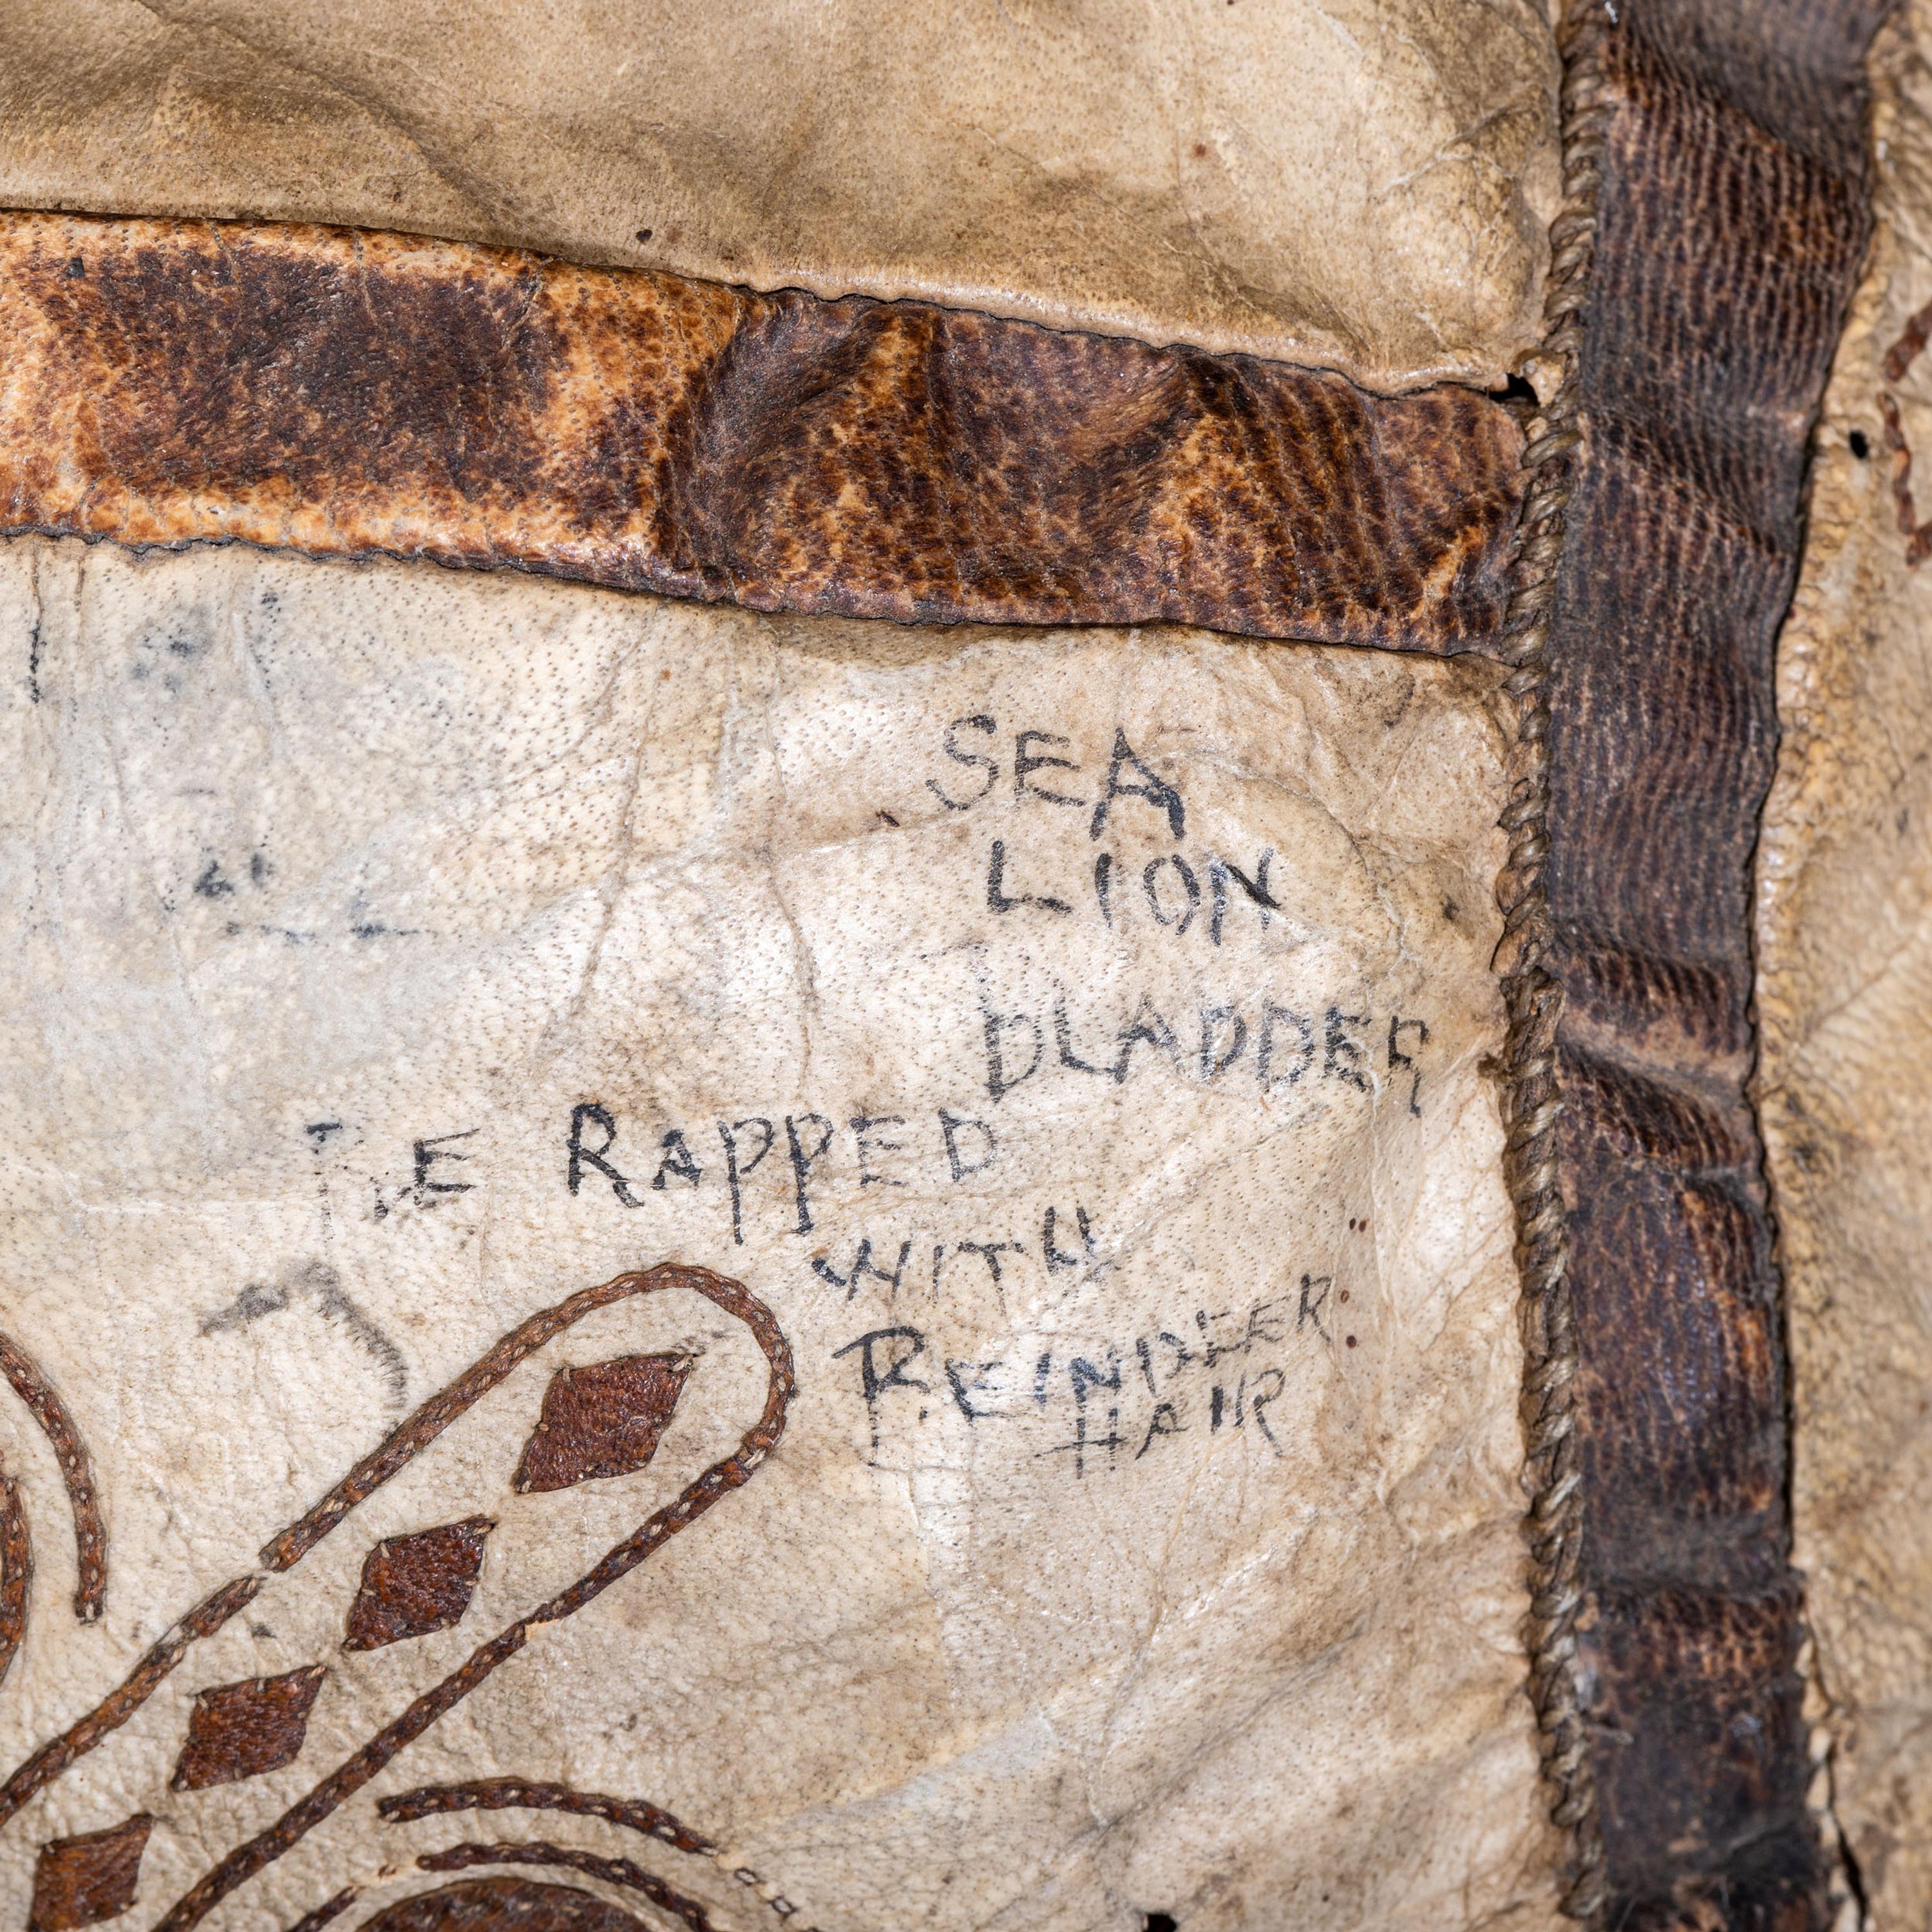 SEA
LION
BLADDER
RAPPED
WITH
REINDEER
HAIR